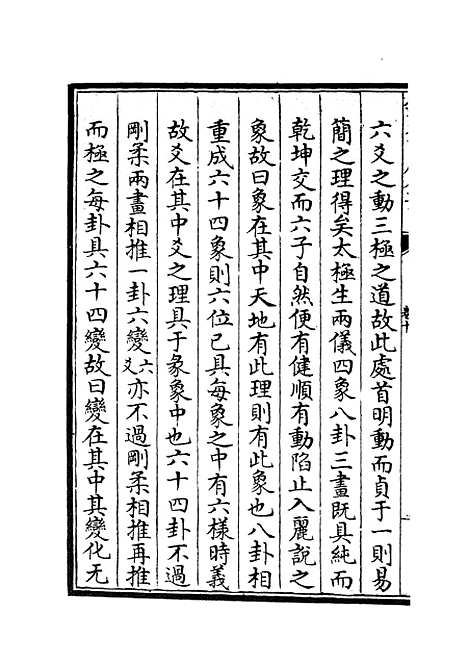 六爻之動三極之道故此處首明動而貞于一則易
簡之理得矣太極生兩儀四象八卦三畫既具純而
乾坤交而六子自然便有健順有動陷止入麗說之
象故曰象在其中天地有此理則有此象也八卦相
重成六十四象則六位已具每象之中有六樣時義
故爻在其中爻之理具于彖象中也六十四卦不過
剛柔兩畫相推一卦六變六爻亦不過剛柔相推再推
而極之每卦具六十四變故曰變在其中其變化无